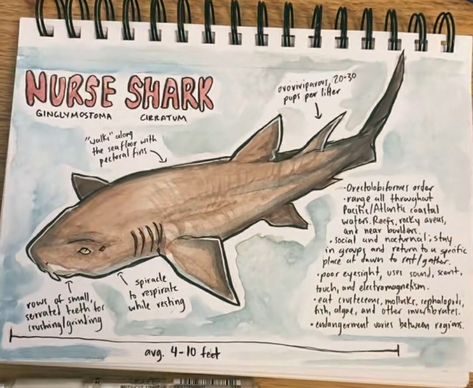 NURSE SHARK
GINGLYMOSTOMA CIRRATUM
ovoviviparous, 20-30
pups per litter
"walks" along
the seafloor with
pectoral fins
-Orectolobiformes order
-range all throughout
Pacific/Atlantic coastal
waters. Reefs, rocky areas,
and near boulders.
•Social and nocturnal; stay
in groups and return to a specific
place at dawn to rest/gather.
•poor eyesight, uses sound, scent,
touch, and electromagnetism.
•eat crustaceans, mollusks, cephalopods,
fish, algae, and other invertebrates.
•endangerment varies between regions.
rows of small,
serrated teeth for
crushing/grinding
spiracle
to respirate
while resting
avg. 4-10 feet